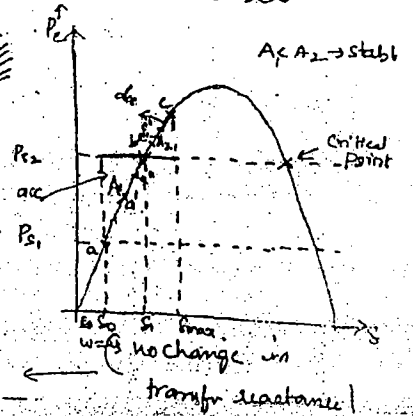 Pe
A1 < A2 → stabl
dec
c
b
A2
Critical
Point
Ps2
acc
A1
a'
Ps1
a
δ0 δ1 δmax
δ
no change in
transfer reactance